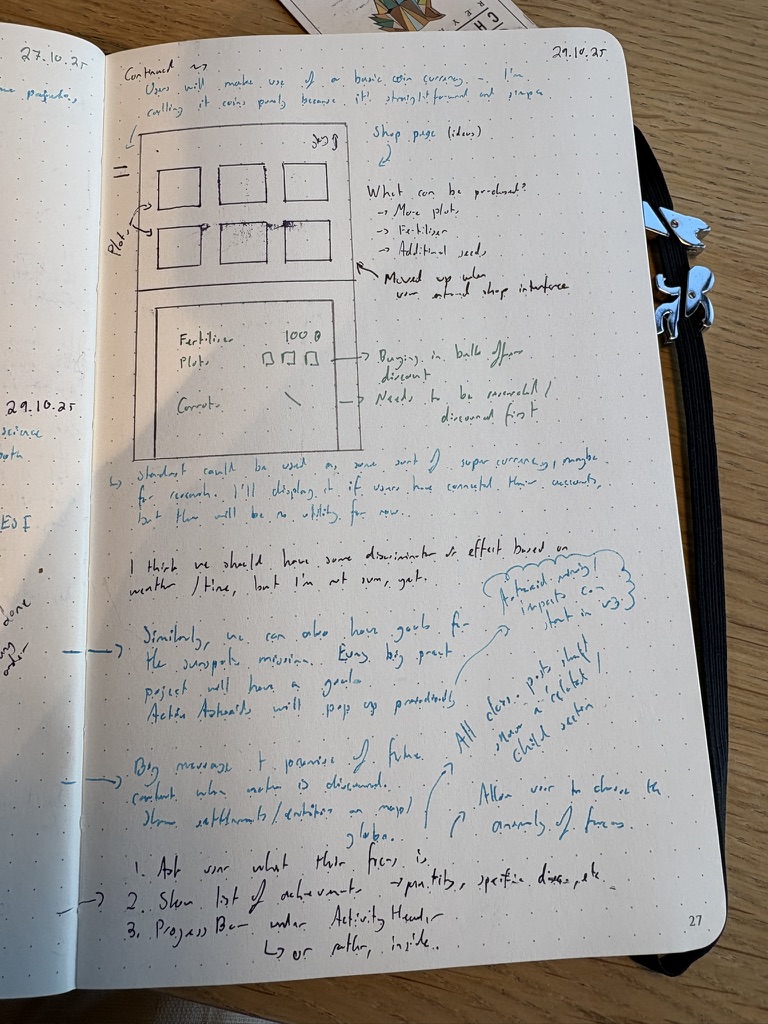 27.10.25
29.10.25
science
done
29.10.25
Continued
Users will make use of a basic coin currency - I'm
calling it coins purely because it's straightforward and simple
Sky
Plots
Shop page (ideas)
What can be purchased?
→ More plots
→ Fertiliser
→ Additional seeds
Moved up when
user entered shop interface
Fertiliser 100
Plots
Carrots
Buying in bulk offers
discount
Needs to be researched /
discovered first
Stardust could be used as some sort of super currency, maybe
for research. I'll display it if users have connected their accounts,
but there will be no utility for now.
I think we should have some discriminator or effect based on
weather / time, but I'm not sure, yet.
Similarly, we can also have goals for
the sunspots mission. Every big
project will have a goal
Active Asteroids will pop up periodically
Asteroid mining /
impacts can
start in v3.
All class. posts should
show a related /
child section
Big message + promise of future
content when water is discovered.
Show settlements/entities on map/
globe.
Allow user to choose the
anomaly of focus.
1. Ask user what their focus is
2. Show list of achievements → specific etc.
3. Progress Bar under Activity Header
↳ or rather, inside.
27